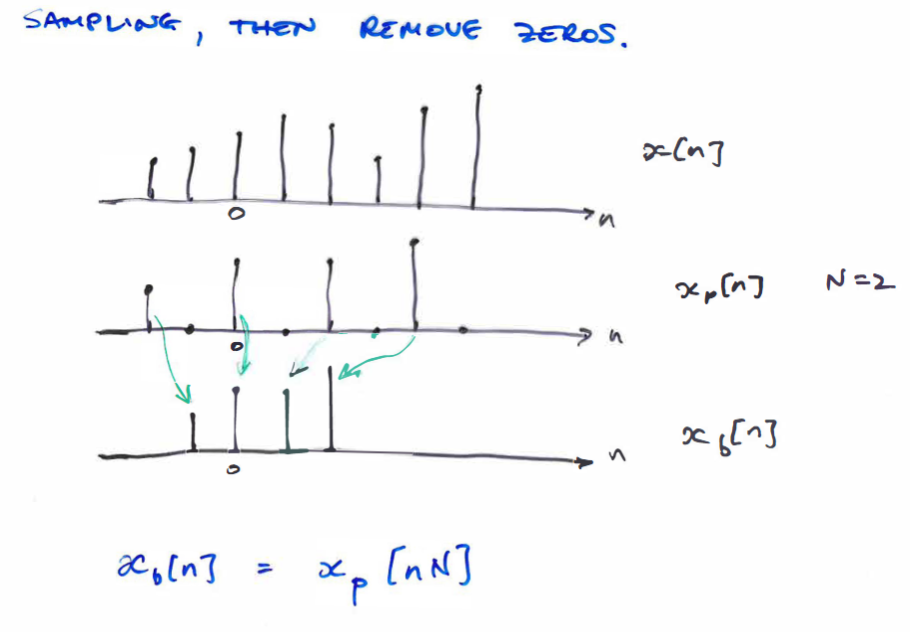 SAMPLING, THEN REMOVE ZEROS.
x[n]
0
n
x_p[n] N=2
0
n
x_b[n]
0
n
x_b[n] = x_p[nN]